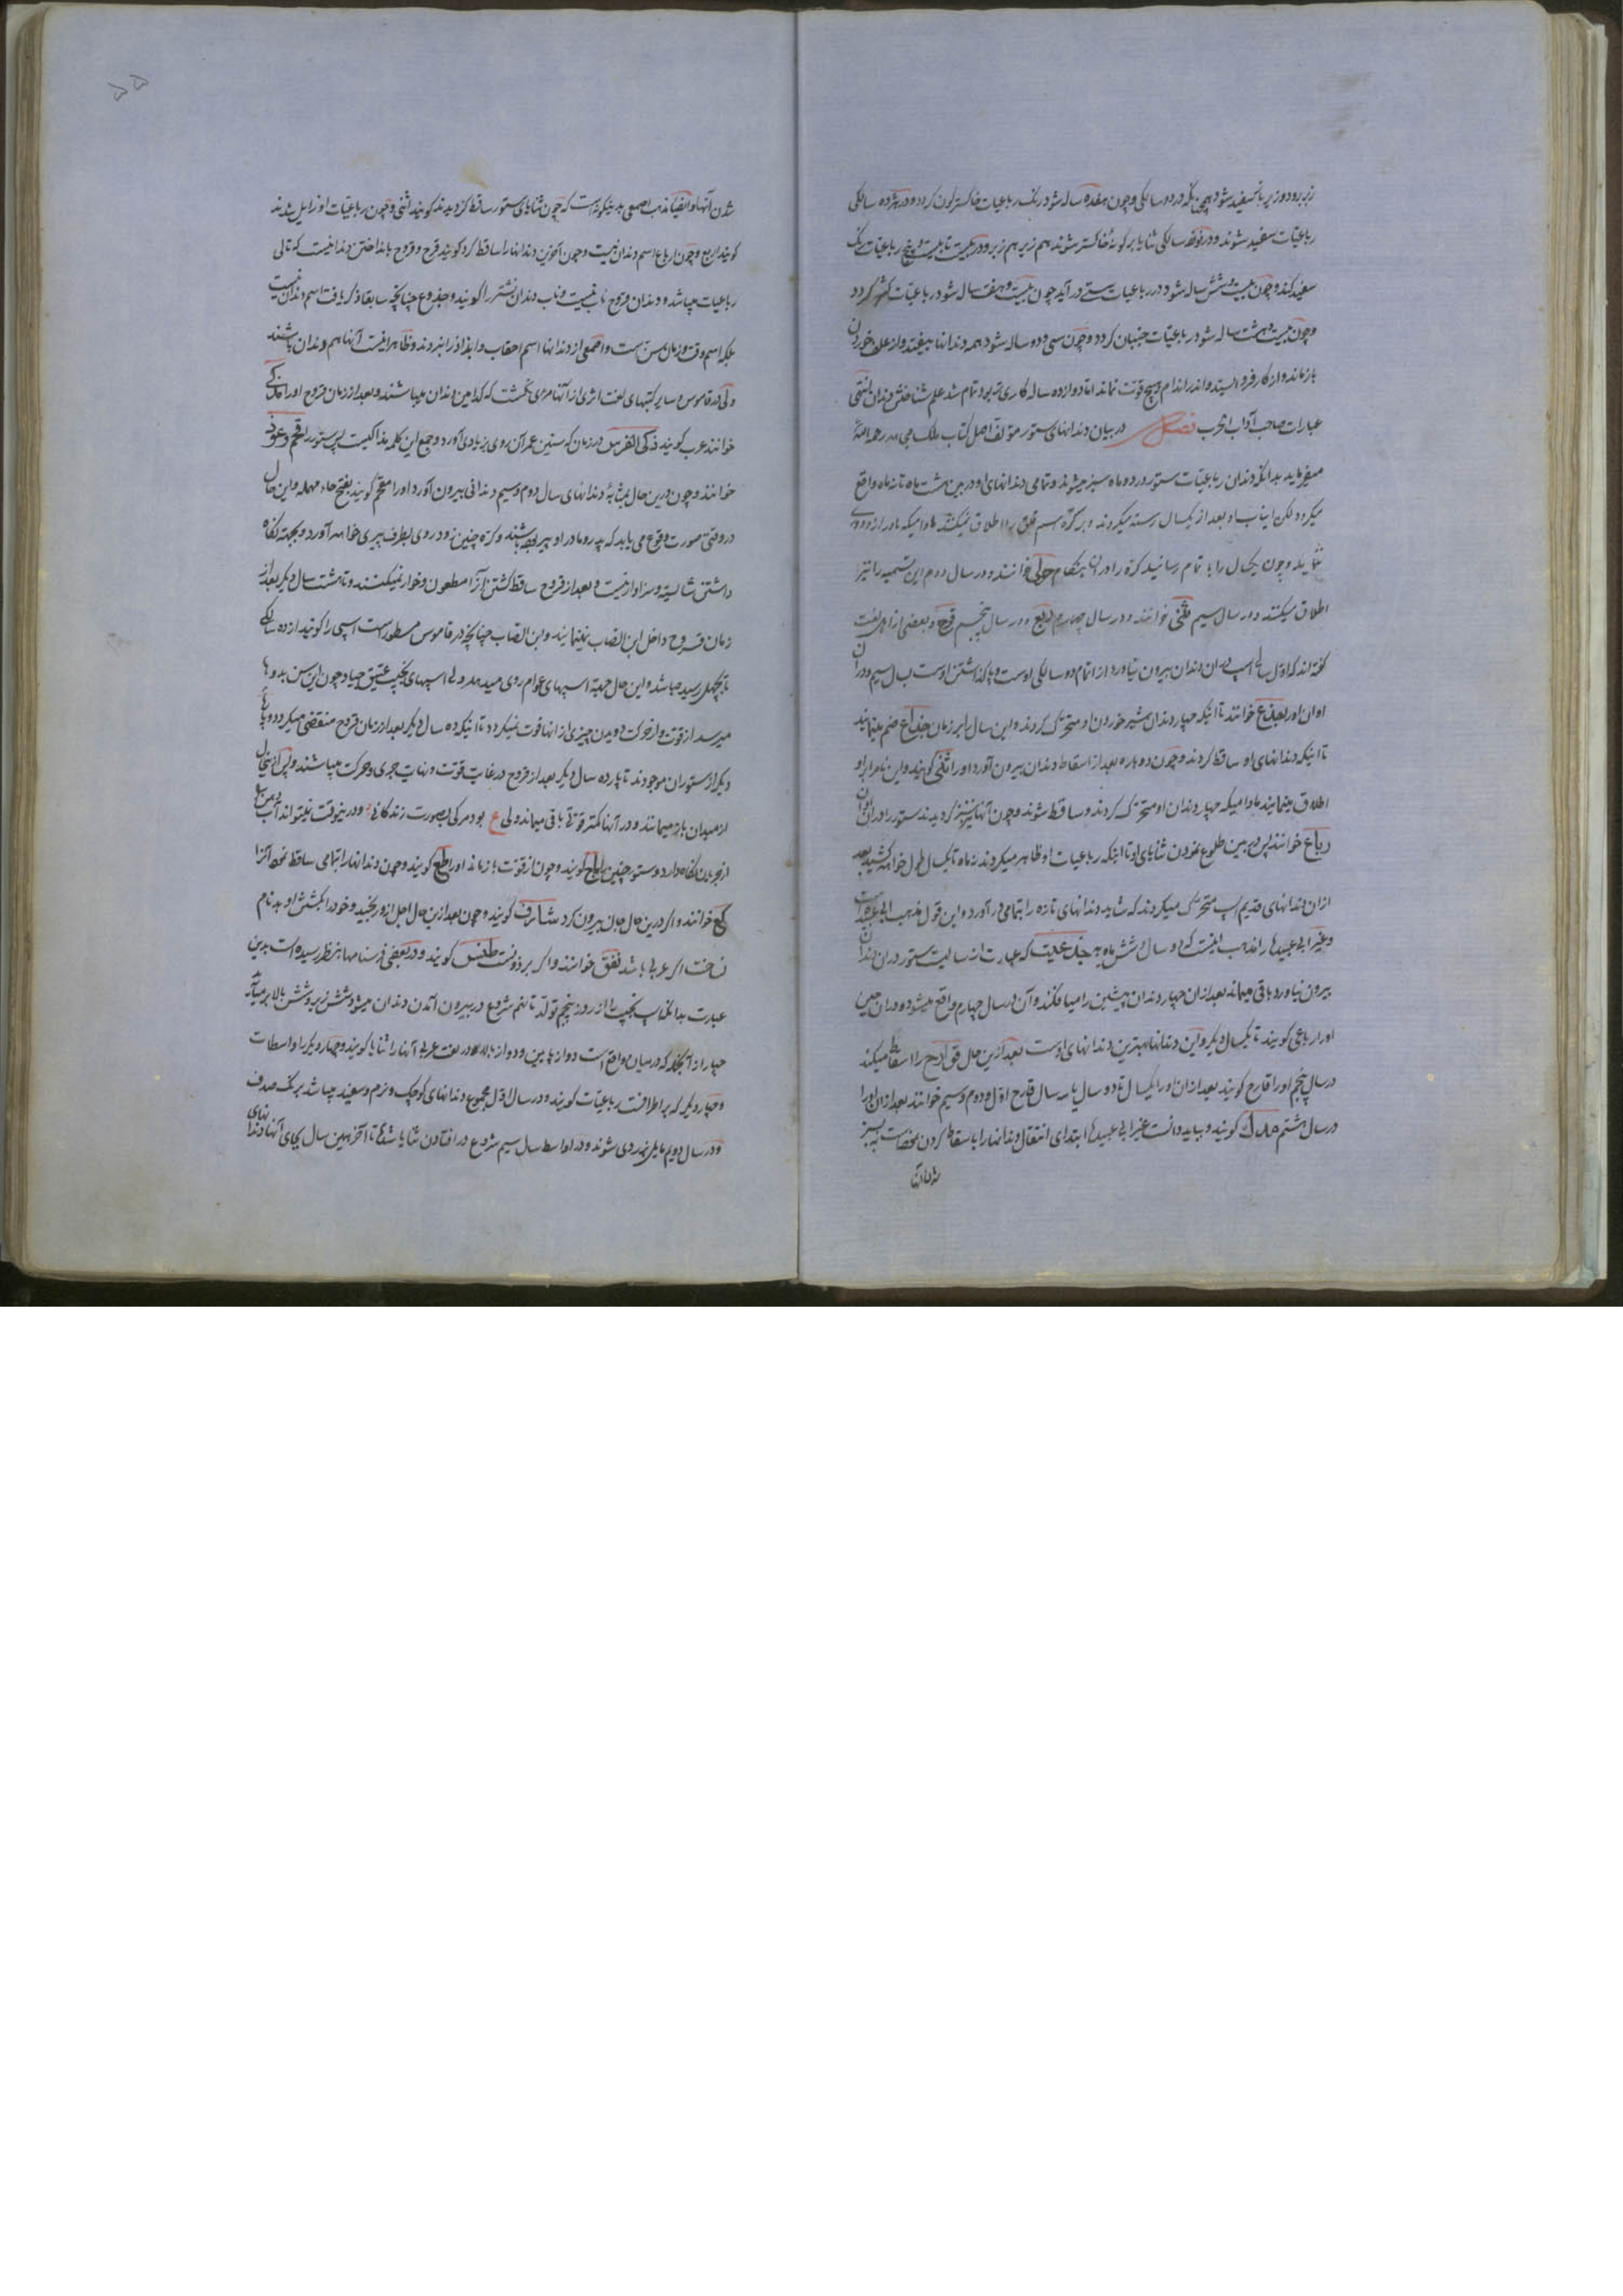 زبر و دو زیر باز سفید شود همچنانکه در دو سالکی و چون هفده ساله شود رنک رباعیات خاکسترلون کردد و در هژده سالکی
رباعیات سفید شوند و در نوزده سالکی ثنایا برکونهٔ خاکستر شوند هم زیر هم زبر و در بیست تا بیست و پنج رباعیات رنک
سفید کند و چون بیست و شش ساله شود در رباعیات سستی درآید چون بیست و هفت ساله شود رباعیات کردد
و چون بیست و هشت ساله شود رباعیات جنبان کردد و چون سی و دو ساله شود همه دندانها بیفتد و از علف خوردن
بازماند و از کار فرو ایستد و اندر اندام هیچ قوت نماند اما دوازده ساله کاری تر بود تمام شد علم شناختن دندان انتهی
عبارات صاحب آداب الحرب فصل در بیان دندانهای ستور مؤلف اصل کتاب ملک رحمه الله
میفرماید بدانکه دندان رباعیات ستور در دو ماه سبز میشوند و تمامی دندانهای او در بین هشت ماه تا نه ماه واقع
میکردد لکن انیاب او بعد از یکسال رسته میکردند و بر کرّه اسم اطلاق میکنند مادامیکه مادر از دوری
نماید و چون یکسال را با تمام رسانید کرّه را در آن هنکام حولی خوانند و در سال دوم این تسمیه را نیز
اطلاق میکنند و در سال سیم ثنی خوانند و در سال چهارم ربع و در سال پنجم قرح و بعضی از اهل لغت
کفته اند که اول سالی اسب در آن دندان بیرون نیاورد از اتمام دو سالکی اوست و پا کذاشتن اوست بسال سیم و در آن
اوان او را جذع خوانند تا اینکه چهار دندان شیر خوردن او متحرک کردند و این سال را بر زمان جذاع ضم مینمایند
تا اینکه دندانهای او ساقط کردند و چون دوباره بعد از اسقاط دندان بیرون آورد او را ثنی کویند و این نام را بر او
اطلاق مینمایند مادامیکه چهار دندان او متحرک کردند و ساقط شوند و چون آنها نیز سبز کردیدند ستور را در آن اوان
رباع خوانند پس در بین طلوع نمودن ثنایای او تا اینکه رباعیات او ظاهر میکردند نه ماه تا یکسال طول خواهد کشید بعد
از آن دندانهای قدیم اسب متحرک میکردند که شاید دندانهای تازه را بتمامی درآورد و این قول مذهب ابی عبیده است
و غیر ابی عبیده را مذهب اینست که دو سال و شش ماه به که عبارت از سالیست ستور در آن دندان
بیرون نیاورد باقی میماند بعد از آن چهار دندان پیشین را میافکند و آن در سال چهارم واقع میشود و در آن حین
او را رباعی کویند تا یکسال دیکر و این دندانها بهترین دندانهای اوست بعد ازین حال قوارح را اسقاط میکند
در سال پنجم او را قارح کویند بعد از آن او را یکسال تا دو سال یا سه سال قارح اول و دوم و سیم خوانند بعد از آن او را
در سال هشتم مذک کویند و بباید دانست غیر ابی عبیده ابتدای انتقال دندانها را باسقاط کردن
شدن آنها
شدن آنها و مذهب اصمعی بدینکونه است که چون ثنایای ستور ساقط کردیدند کویند اثنی و چون رباعیات او زایل شدند
کویند اربع و چون ارباع اسم دندان نیست و چون آخرین دندانها را ساقط کرد کویند قرح و قروح بانداختن دندانیست که تالی
رباعیات میباشد و دندان قروح ناب نیست و ناب دندان نشتر را کویند و جذوع چنانچه سابقا ذکر یافت اسم دندان نیست
بلکه اسم وقت و زمان سن است و اصمعی از دندانها اسم احقاب و ابذاذ را نبردند و ظاهر اینست آنها هم دندان باشند
ولی در قاموس و سایر کتبهای لغت اثری از آنها مرئی نکشت که کدامین دندان میباشند و بعد از زمان قروح او را مذکی
خوانند عرب کویند ذکی الفرس در زمان که سنین عمر آن روی بزیادی آورد و جمع این کلمه مذاکیست پس ستور را قحم و عود
خوانند و چون درین حال بمثابهٔ دندانهای سال دوم و سیم دندانی بیرون آورد او را مقحم کویند بفتح حاء مهمله و این حال
در وقتی صورت وقوع می یابد که پدر و مادر او پیر باشند و کرّه چنین زود روی بطرف پیری خواهد آورد و بجهته نکاه
داشتن شایسته و سزاوار نیست و بعد از قروح ساقط کشتن آنرا مطعون و خوار نمیکنند و تا هشت سال دیکر بعد از
زمان قروح داخل این القاب نمینمایند و این القاب چنانچه در قاموس مسطور است اسبی را کویند از ده سالکی
تا بچهل رسیده باشد و این حال جمله اسبهای عوام روی میدهد ولی اسبهای نجیب عتیق جیاد چون این سن بدوها
میرسد از قوت و از حرکت دویدن چیزی از انها فوت نمیکردد تا اینکه ده سال دیکر بعد از زمان قروح منقضی میکردد و پارهٔ
دیکر از ستوران موجودند تا پانزده سال دیکر بعد از قروح در غایت قوت و نهایت جری و حرکت میباشند و پس از پنجسال
از میدان باز میمانند و در آنها کمتر قوتی باقی میماند ولی ع بود مرکی بصورت زندکانی و درینوقت نمیتواند آب دهن را
از جریان نکاه دارد و ستور چنین را ماج کویند و چون از قوت بازماند او را طع کویند و چون دندانها را بتمامی ساقط نمود آنرا
کحکح خوانند و اکر درین حال جان بیرون کرد شارف کویند و چون بعد ازین حال اجل از او رنجید و خود را بکشتن او بدنام
ساخت اکر عربی باشد نفق خوانند و اکر برذونست طفس کویند و در بعضی فرسنامها بنظر رسیده است بدین
عبارت بدانکه اسب نجیب را از روز پنجم تولد تا نهم شروع در بیرون آمدن دندان میشود شش زیر و شش بالا بر میآید
چهار از آنجمله که در میان واقع است دو از پایین و دو از بالا در لغت عربی آنها را ثنایا کویند و چهار دیکر را واسطات
و چهار دیکر که بر اطرافست رباعیات کویند و در سال اول مجموع دندانهای کوچک و نرم و سفید میباشد برنک صدف
و در سال دویم مایل بزردی شوند و در اواسط سال سیم شروع در افتادن ثنایا شده تا آخر همین سال بجای آنها دندانهای
۵۵